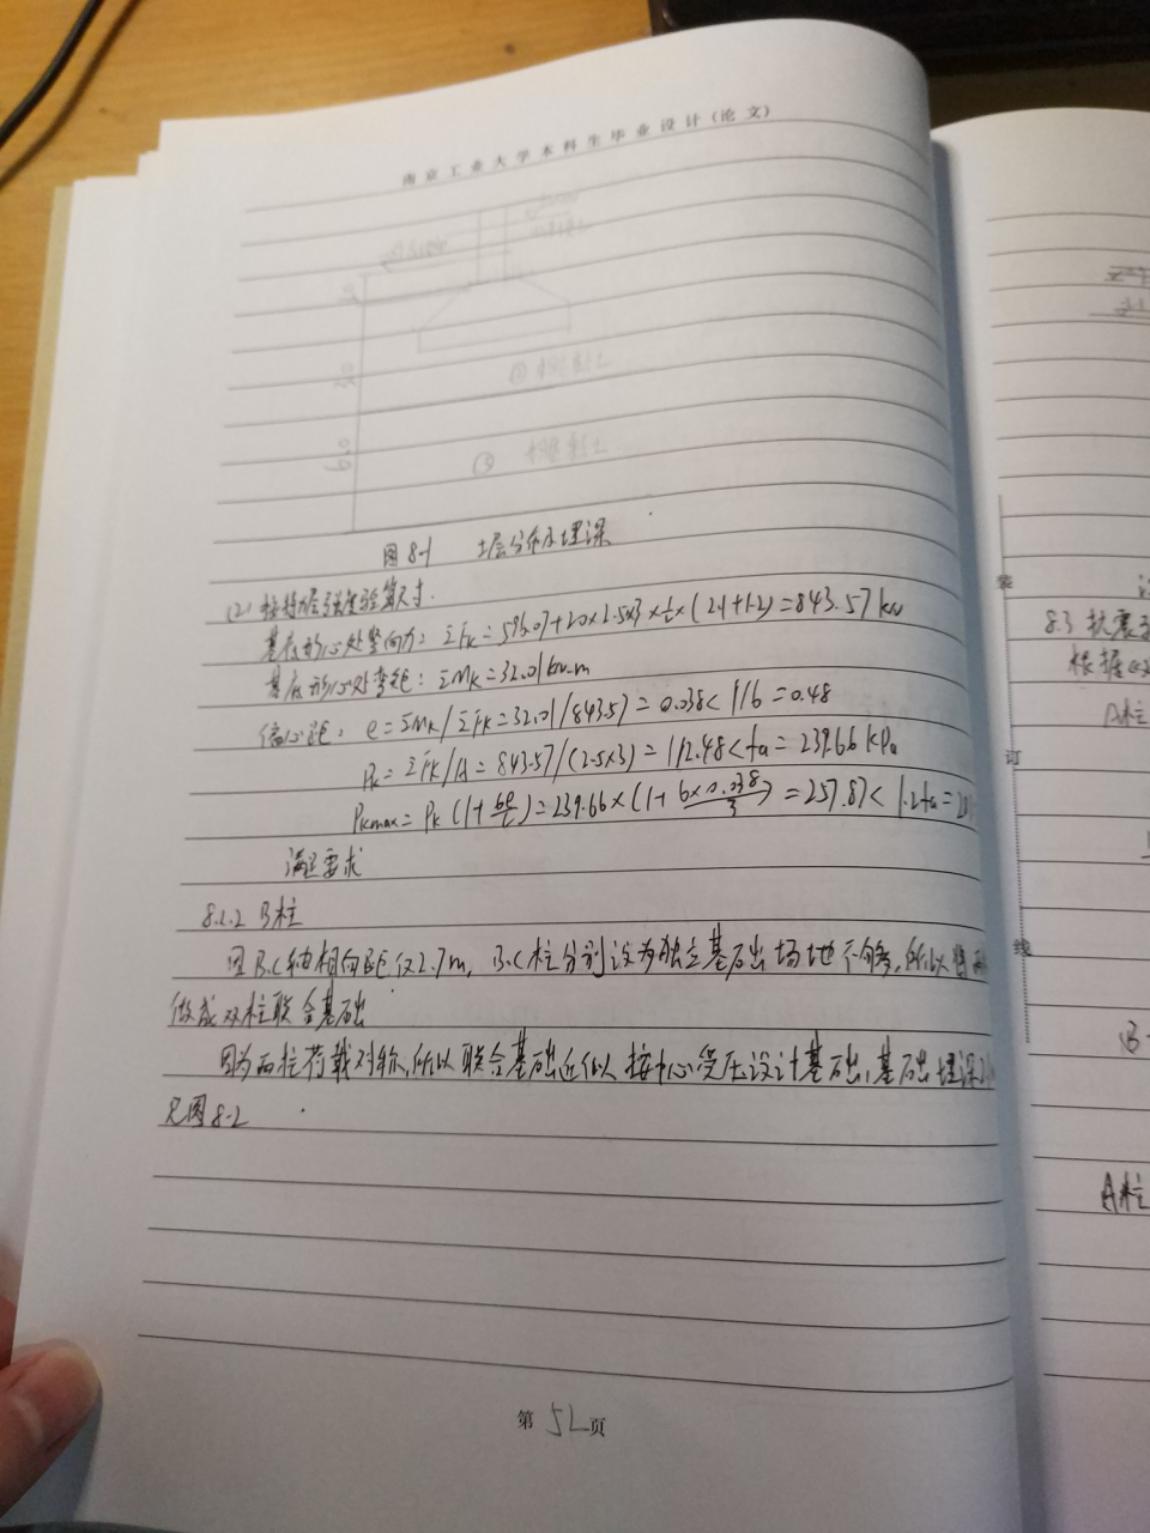 南京工业大学本科生毕业设计(论文)
② 粉质粘土
③ 粉质粘土
图8-1 土层分布及埋深
(2) 按持力层强度验算尺寸.
基底形心处竖向力: ΣFk=596.07+20×2.5×3×½×(2.1+1.2)=843.57kN
基底形心处弯矩: ΣMk=32.01kN.m
偏心距: e=ΣMk/ΣFk=32.01/843.57=0.038<l/6=0.48
Pk=ΣFk/A=843.57/(2.5×3)=112.48<fa=239.66kPa
Pkmax=Pk(1+6e/l)=239.66×(1+6×0.038/3)=257.87<1.2fa=
满足要求
8.2.2 B柱
因B.C轴相向距仅2.7m, B.C柱分别设为独立基础场地不够,所以将
做成双柱联合基础
因为两柱荷载对称,所以联合基础近似按中心受压设计基础,基础埋深
见图8-2
第52页
装
订
线
8.3 抗震
根据
A柱
B
A柱